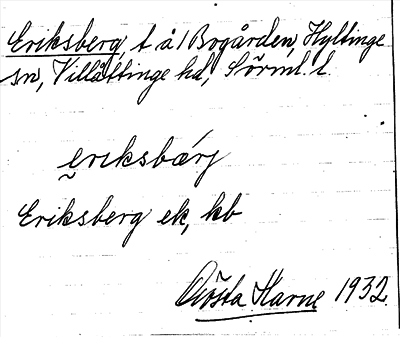 Eriksberg, t å 1 Bogården, Hyltinge
sn, Villåttinge hd, Sörml. l.
eriksbærj
Eriksberg ek, kb
Gösta Harne 1932.